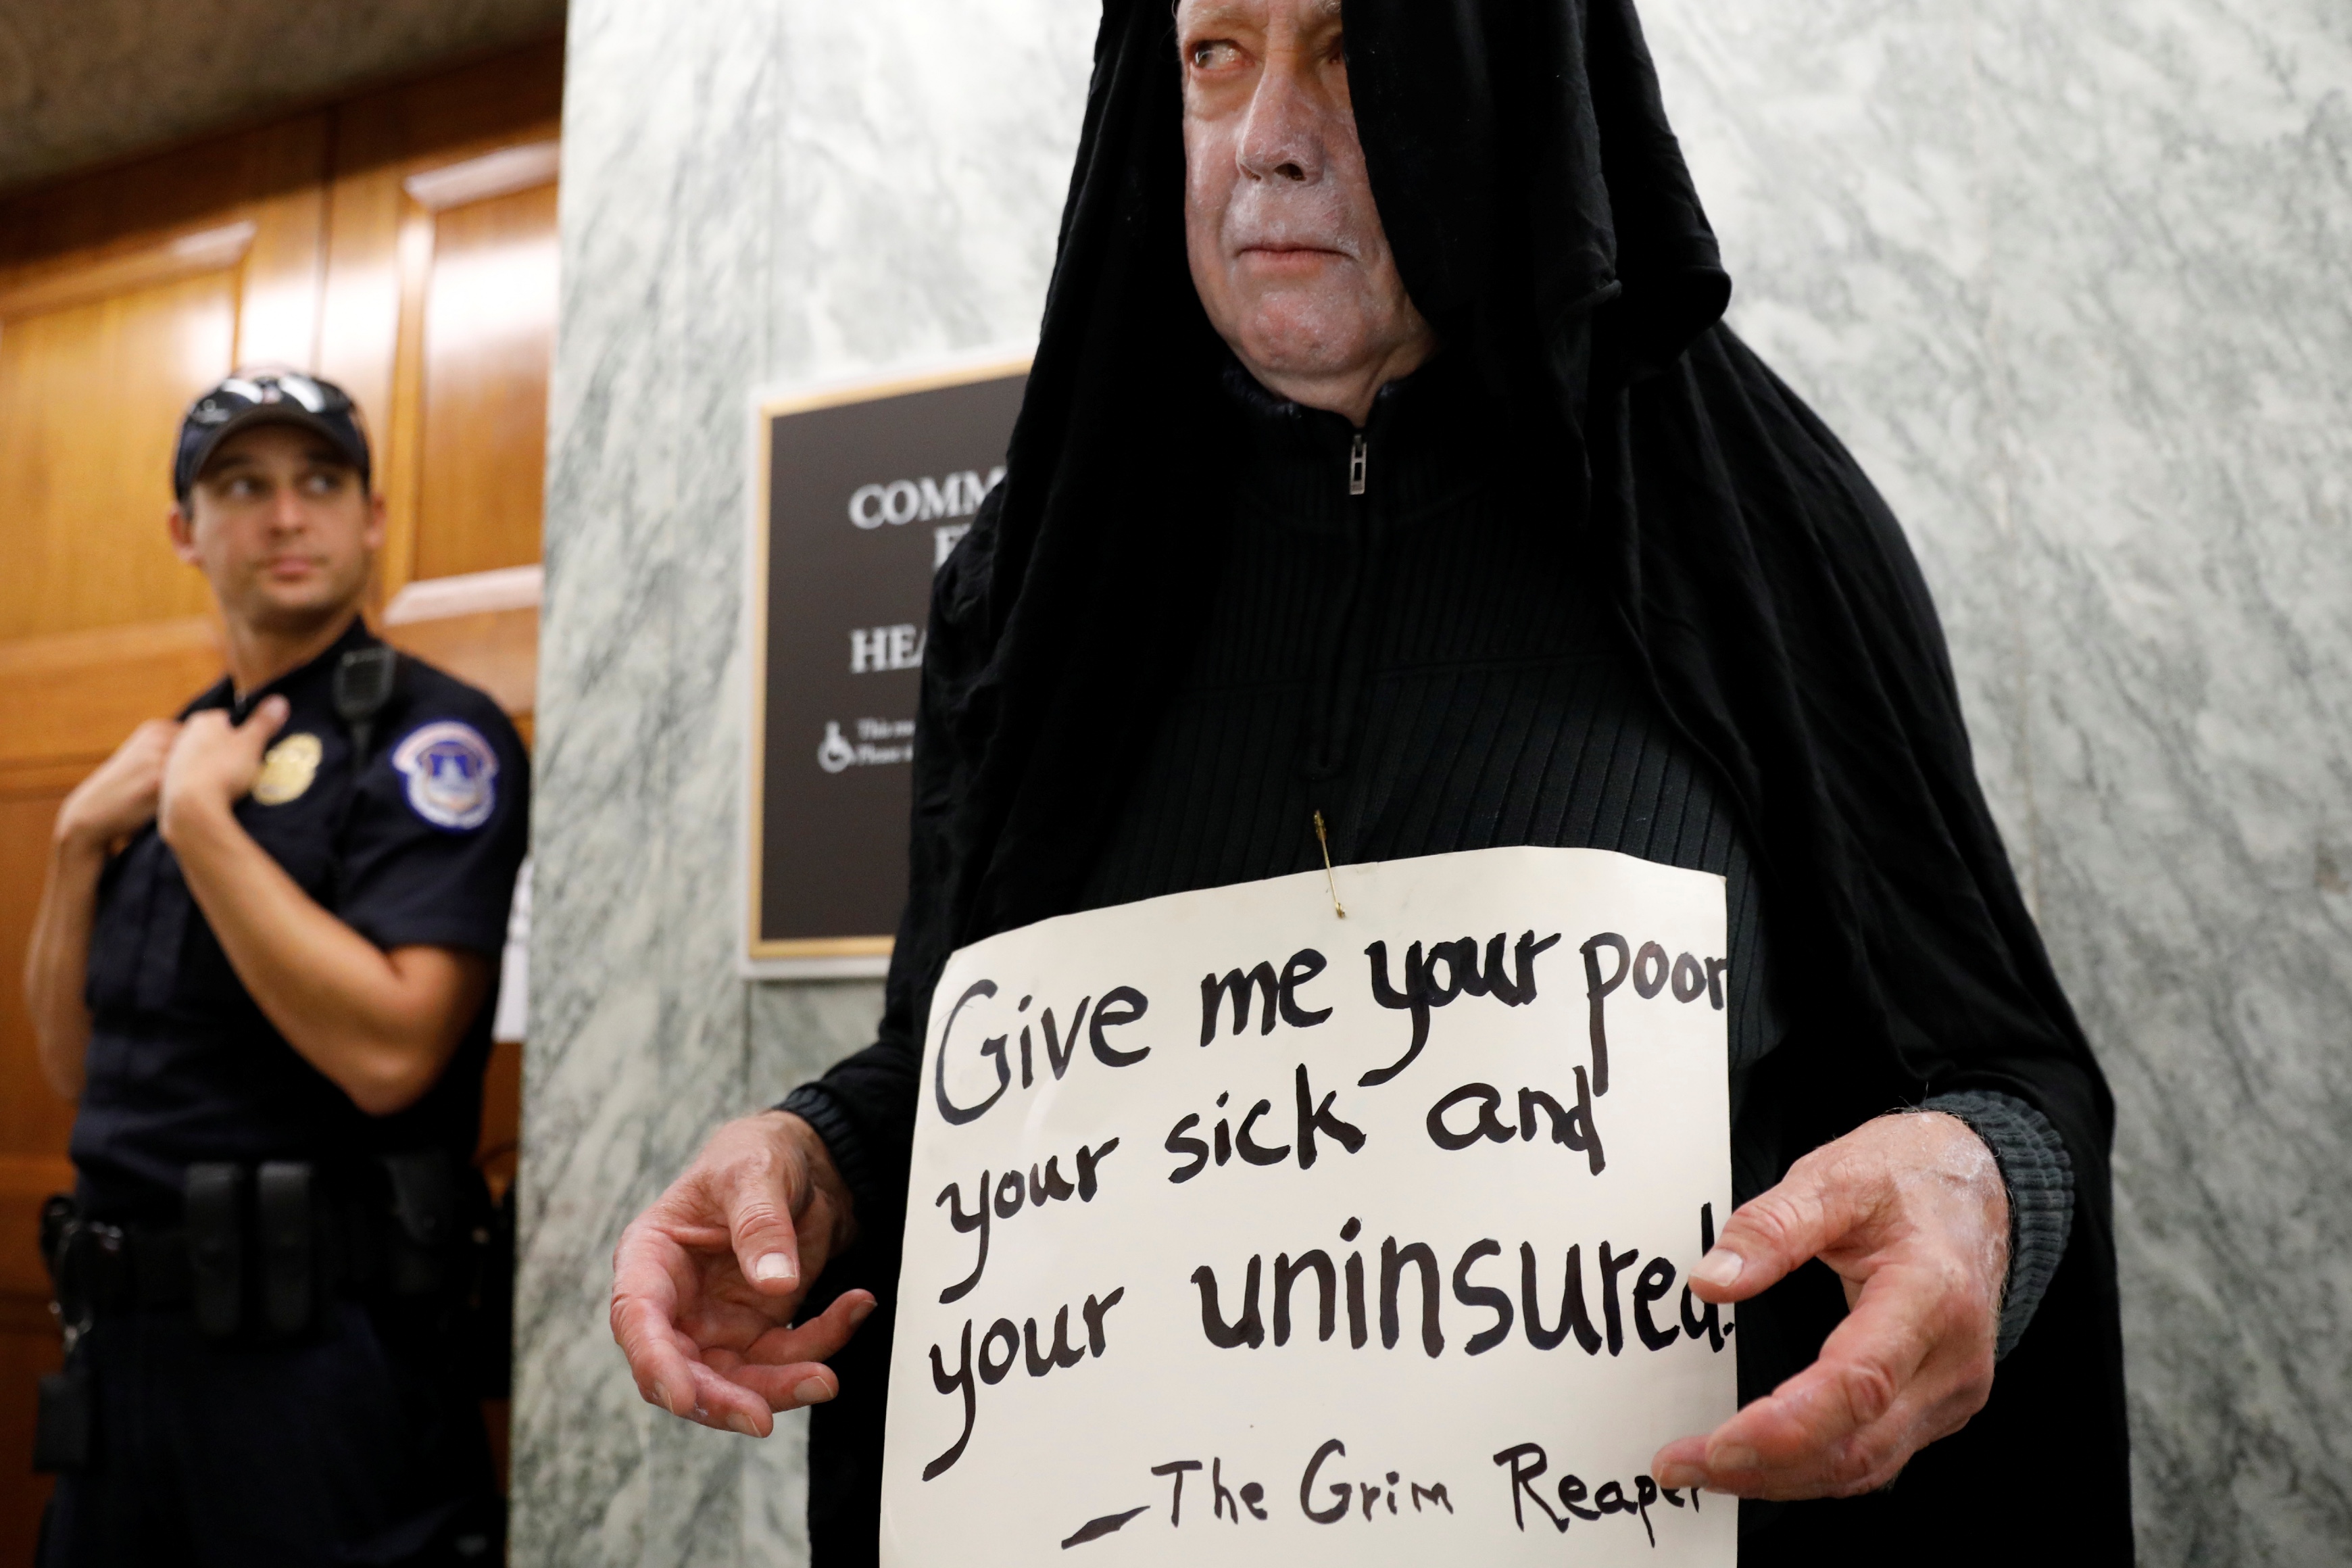 Give me your poor
your sick and
your uninsured.
—The Grim Reaper